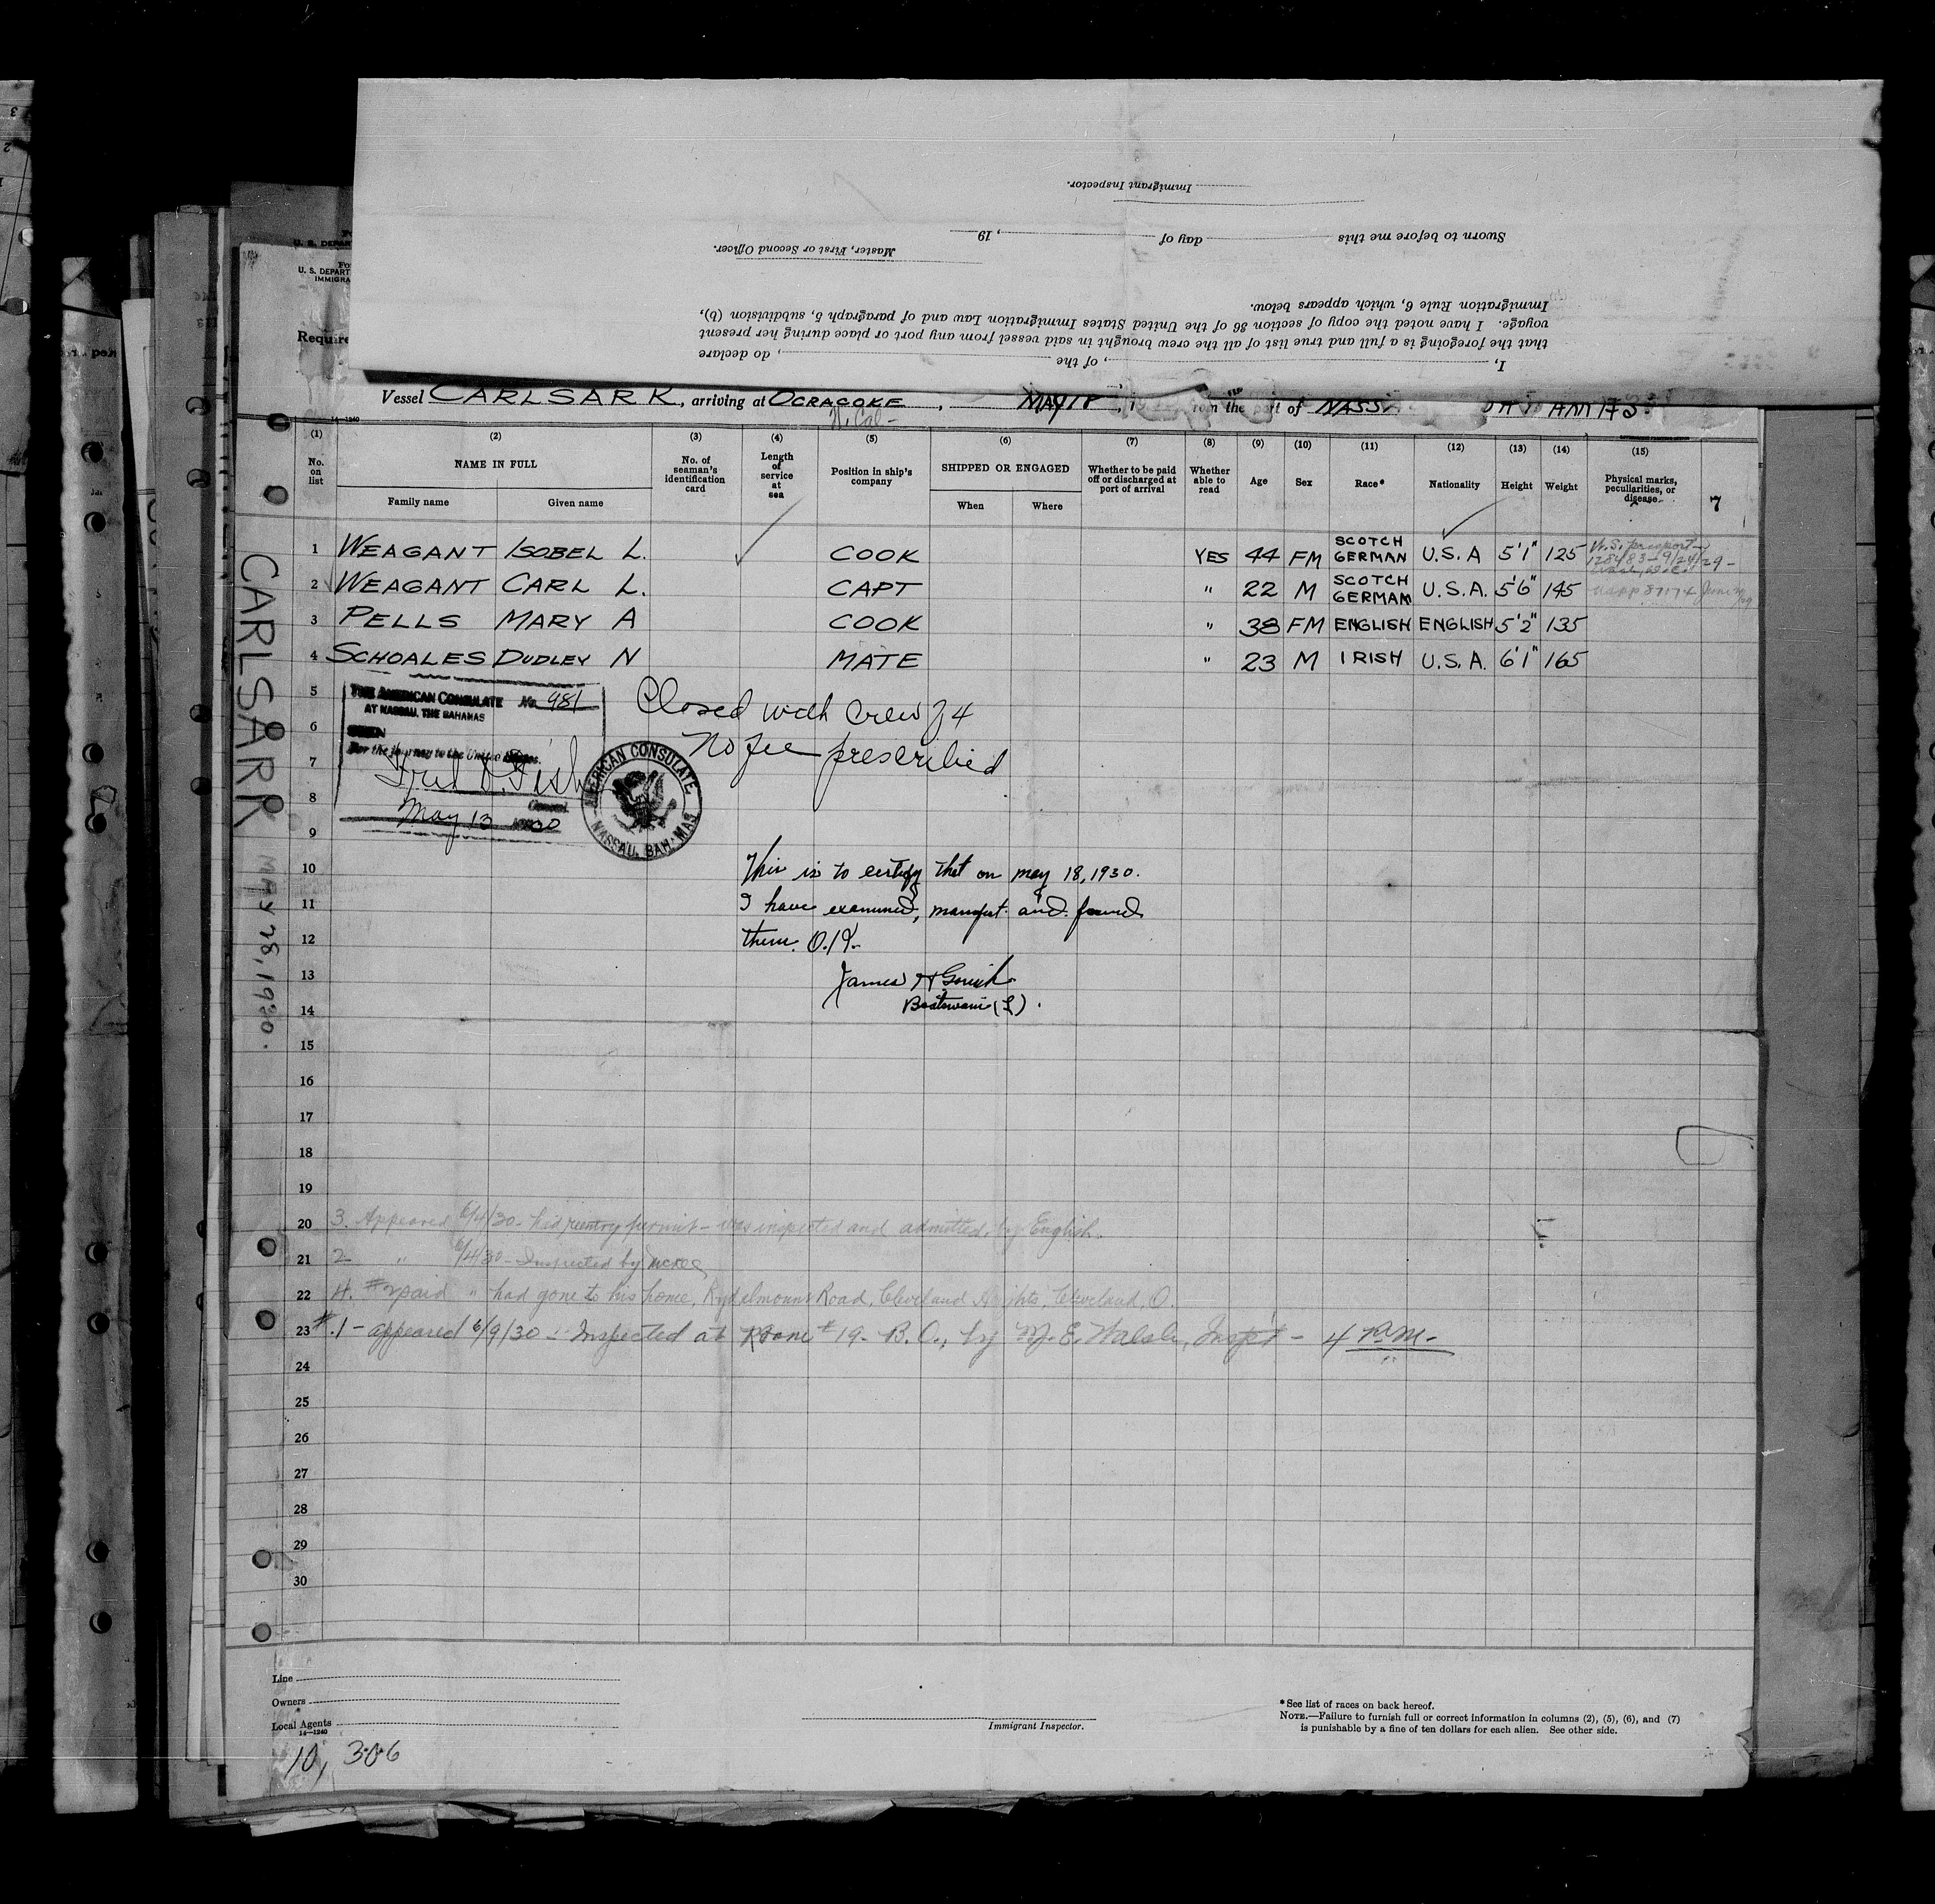 Immigrant Inspector.
Sworn to before me this day of , 19
Master, First or Second Officer.
I, , of the , do declare
that the foregoing is a full and true list of all the crew brought in said vessel from any port or place during her present
voyage. I have noted the copy of section 36 of the United States Immigration Law and of paragraph 5, subdivision (b),
Immigration Rule 6, which appears below.
U. S. DEPART
IMMIGRA
Require
Vessel CARLSARK, arriving at OCRACOKE, MAY 18, from the port of NASS
14-1240
(1) (2) (3) (4) (5) (6) (7) (8) (9) (10) (11) (12) (13) (14) (15)
No. on list
NAME IN FULL
Family name Given name
No. of seaman's identification card
Length of service at sea
Position in ship's company
SHIPPED OR ENGAGED
When Where
Whether to be paid off or discharged at port of arrival
Whether able to read
Age
Sex
Race*
Nationality
Height
Weight
Physical marks, peculiarities, or disease
7
1 WEAGANT ISOBEL L. COOK YES 44 FM SCOTCH GERMAN U.S.A 5'1" 125 U.S. passport
2 WEAGANT CARL L. CAPT " 22 M SCOTCH GERMAN U.S.A. 5'6" 145
3 PELLS MARY A COOK " 38 FM ENGLISH ENGLISH 5'2" 135
4 SCHOALES DUDLEY N MATE " 23 M IRISH U.S.A. 6'1" 165
5
6
7
8
9
10
11
12
13
14
15
16
17
18
19
20
21
22
23
24
25
26
27
28
29
30
THE AMERICAN CONSULATE No. 981
AT NASSAU, THE BAHAMAS
SEEN
For the journey to the United States.
Consul.
May 13 1930
AMERICAN CONSULATE
NASSAU, BAHAMAS
Closed with Crew of 4
No fee prescribed
This is to certify that on may 18, 1930.
I have examined, manifest and found
them. O.K.
James H
Boatswain (L).
3. Appeared 6/4/30 - had reentry permit - was inspected and admitted by English.
2 " 6/4/30 - Inspected by McKee
4. #2 said " had gone to his home, Rydalmount Road, Cleveland Heights, Cleveland, O.
#.1 - appeared 6/9/30 - Inspected at Room #19 - B.O., by M. E. Walsh, Inspt - 4 P.M.
CARLSARK MAY 28, 1930.
Line
Owners
Local Agents
14-1240
Immigrant Inspector.
*See list of races on back hereof.
NOTE.—Failure to furnish full or correct information in columns (2), (5), (6), and (7)
is punishable by a fine of ten dollars for each alien. See other side.
10,306